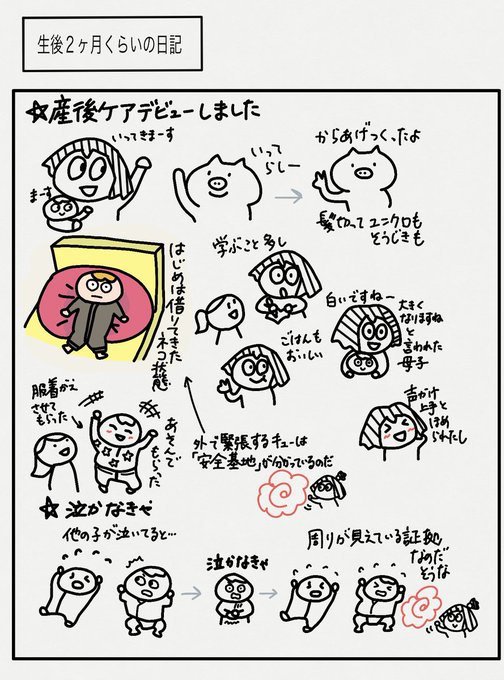 生後2ヶ月くらいの日記
☆産後ケアデビューしました
いってきまーす
まーす
いって
らしー
からあげつくったよ
髪切ってユニクロも
そうじきも
はじめは借りてきた
ネコ状態
学ぶこと多し
ごはんも
おいしい
白いですねー
大きく
なりますね
と
言われた
母子
声かけ
上手と
ほめ
られたし
服着がえ
させて
もらった
あそんで
もらった
外で緊張するキューは
「安全基地」が分かっているのだ
☆泣かなきゃ
他の子が泣いてると…
泣かなきゃ
周りが見えている証拠
なのだ
そうな